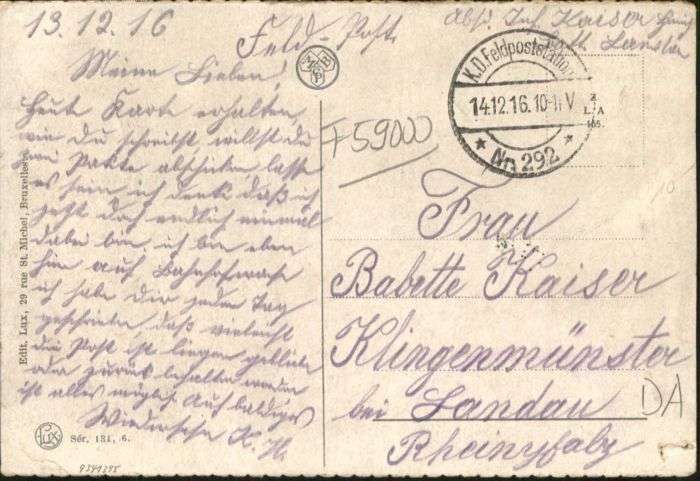 13.12.16
Feld-Post
Abs. Inf. Kaiser
Landau
Meine Lieben!
Heute Karte erhalten,
wie Du schreibst willst du
Pakte abschicken lasse
es sein ich denke daß ich
jetzt doch endlich einmal
dabei bin, ich bin eben
hier auf Bahnhofwache
ich habe Dir jeden Tag
geschrieben daß vieleicht
die Post ist liegen geblieben
oder zurück behalten worden
ist alles möglich Auf baldiges
Wiedersehn K. H.
K.D. Feldpoststation
14.12.16. 10-11 V
Nr. 292
F59000
Frau
Babette Kaiser
Klingenmünster
bei Landau
Rheinpfalz
DA
Edit. Lux, 29 rue St. Michel, Bruxelles
Lux
Sér. 131, 6.